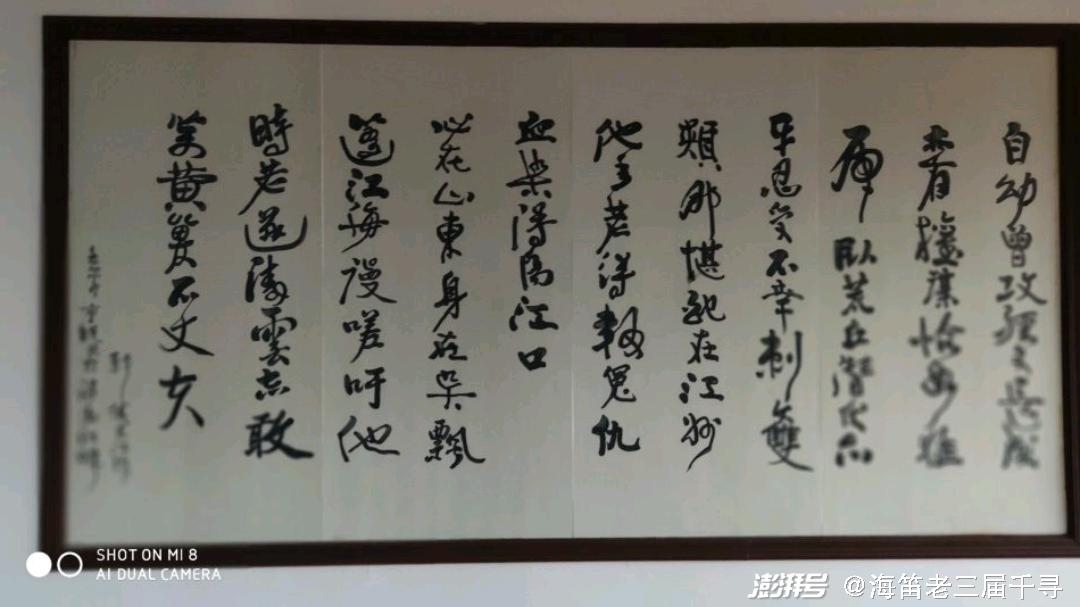 自幼曾攻經史長成
亦有權謀恰如猛
虎臥荒丘潛伏爪
牙忍受不幸刺雙
頰那堪配在江州
他年若得報冤仇
血染潯陽江口
心在山東身在吴飄
蓬江海謾嗟吁他
時若遂凌雲志敢
笑黄巢不丈夫
SHOT ON MI 8
AI DUAL CAMERA
澎湃号 @海笛老三届千寻